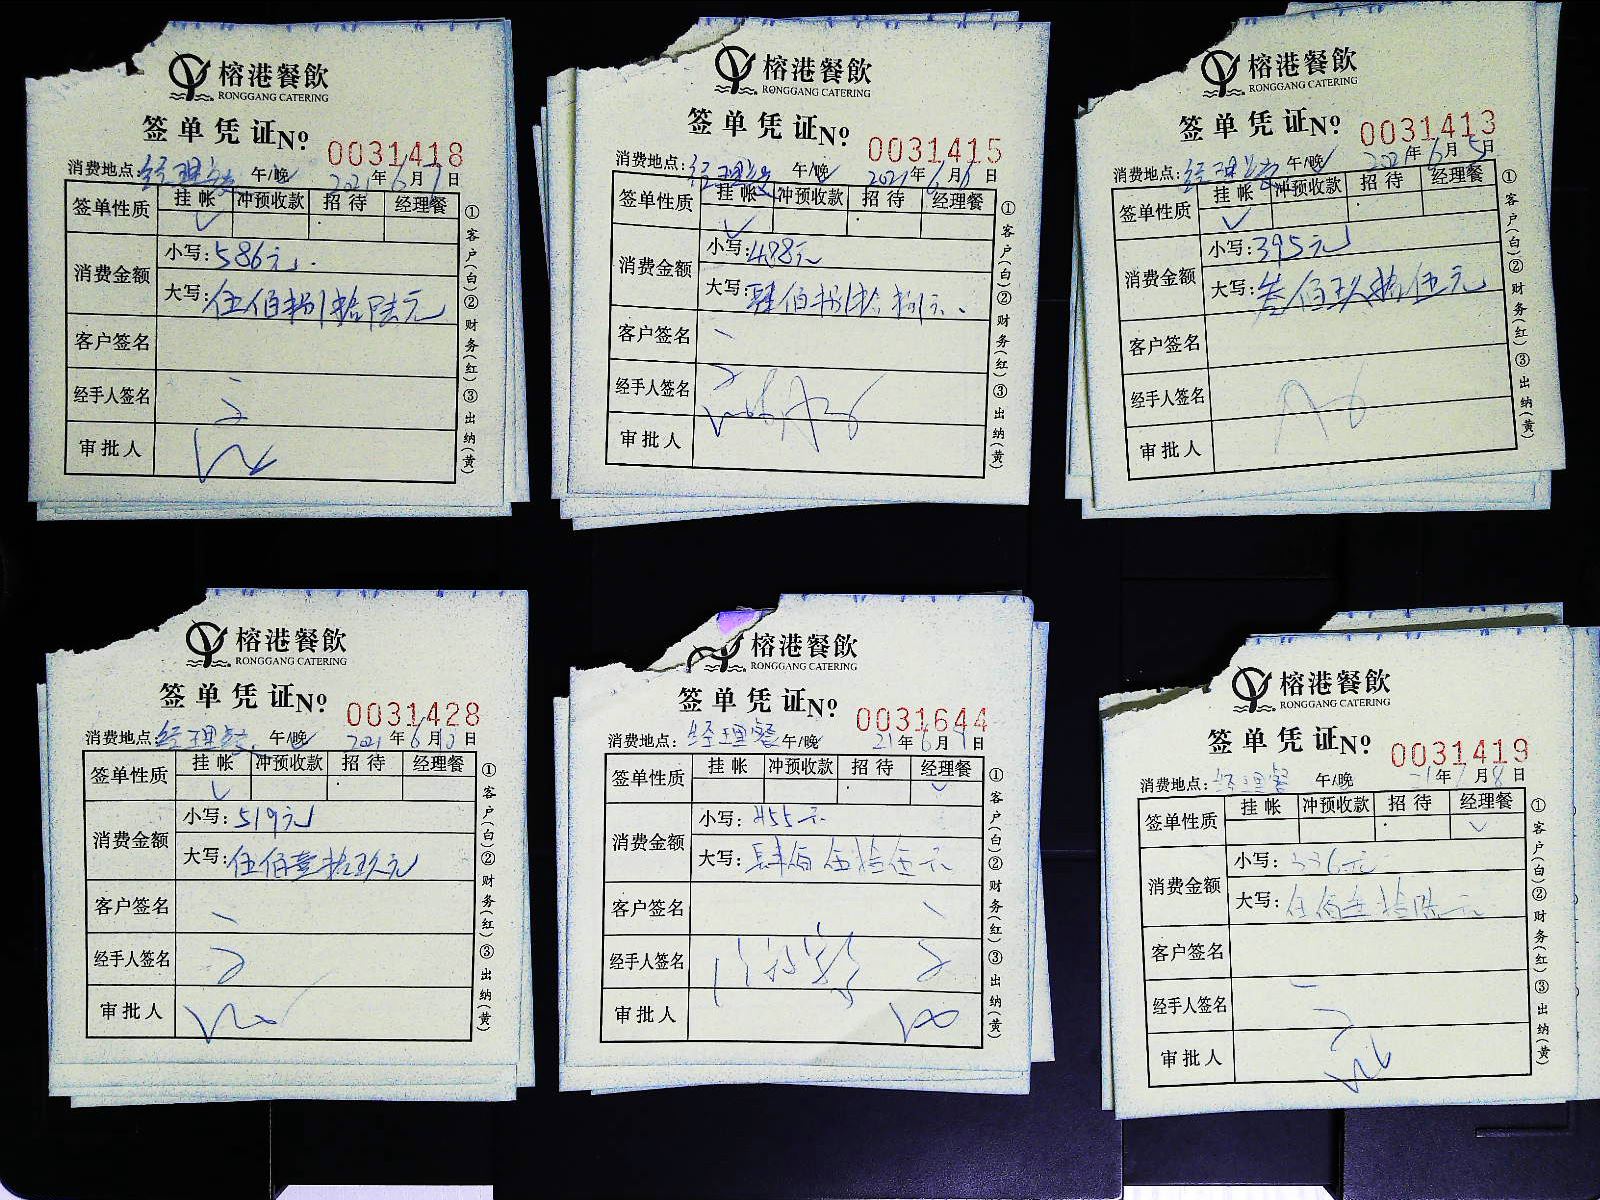 榕港餐飲
RONGGANG CATERING
签单凭证№ 0031418
消费地点:经理餐 午/晚 2021年6月7日
签单性质 挂帐 冲预收款 招待 经理餐
消费金额 小写:586元
大写:伍佰捌拾陆元
客户签名
经手人签名
审批人
①客户(白)②财务(红)③出纳(黄)
榕港餐飲
RONGGANG CATERING
签单凭证№ 0031415
消费地点:经理餐 午/晚 2021年6月6日
签单性质 挂帐 冲预收款 招待 经理餐
消费金额 小写:488元
大写:肆佰捌拾捌元
客户签名
经手人签名
审批人
①客户(白)②财务(红)③出纳(黄)
榕港餐飲
RONGGANG CATERING
签单凭证№ 0031413
消费地点:经理餐 午/晚 2021年6月5日
签单性质 挂帐 冲预收款 招待 经理餐
消费金额 小写:395元
大写:叁佰玖拾伍元
客户签名
经手人签名
审批人
①客户(白)②财务(红)③出纳(黄)
榕港餐飲
RONGGANG CATERING
签单凭证№ 0031428
消费地点:经理餐 午/晚 2021年6月10日
签单性质 挂帐 冲预收款 招待 经理餐
消费金额 小写:519元
大写:伍佰壹拾玖元
客户签名
经手人签名
审批人
①客户(白)②财务(红)③出纳(黄)
榕港餐飲
RONGGANG CATERING
签单凭证№ 0031644
消费地点:经理餐 午/晚 21年6月9日
签单性质 挂帐 冲预收款 招待 经理餐
消费金额 小写:455元
大写:肆佰伍拾伍元
客户签名
经手人签名
审批人
①客户(白)②财务(红)③出纳(黄)
榕港餐飲
RONGGANG CATERING
签单凭证№ 0031419
消费地点:经理餐 午/晚 年 月8日
签单性质 挂帐 冲预收款 招待 经理餐
消费金额 小写: 元
大写: 佰 拾陆元
客户签名
经手人签名
审批人
①客户(白)②财务(红)③出纳(黄)